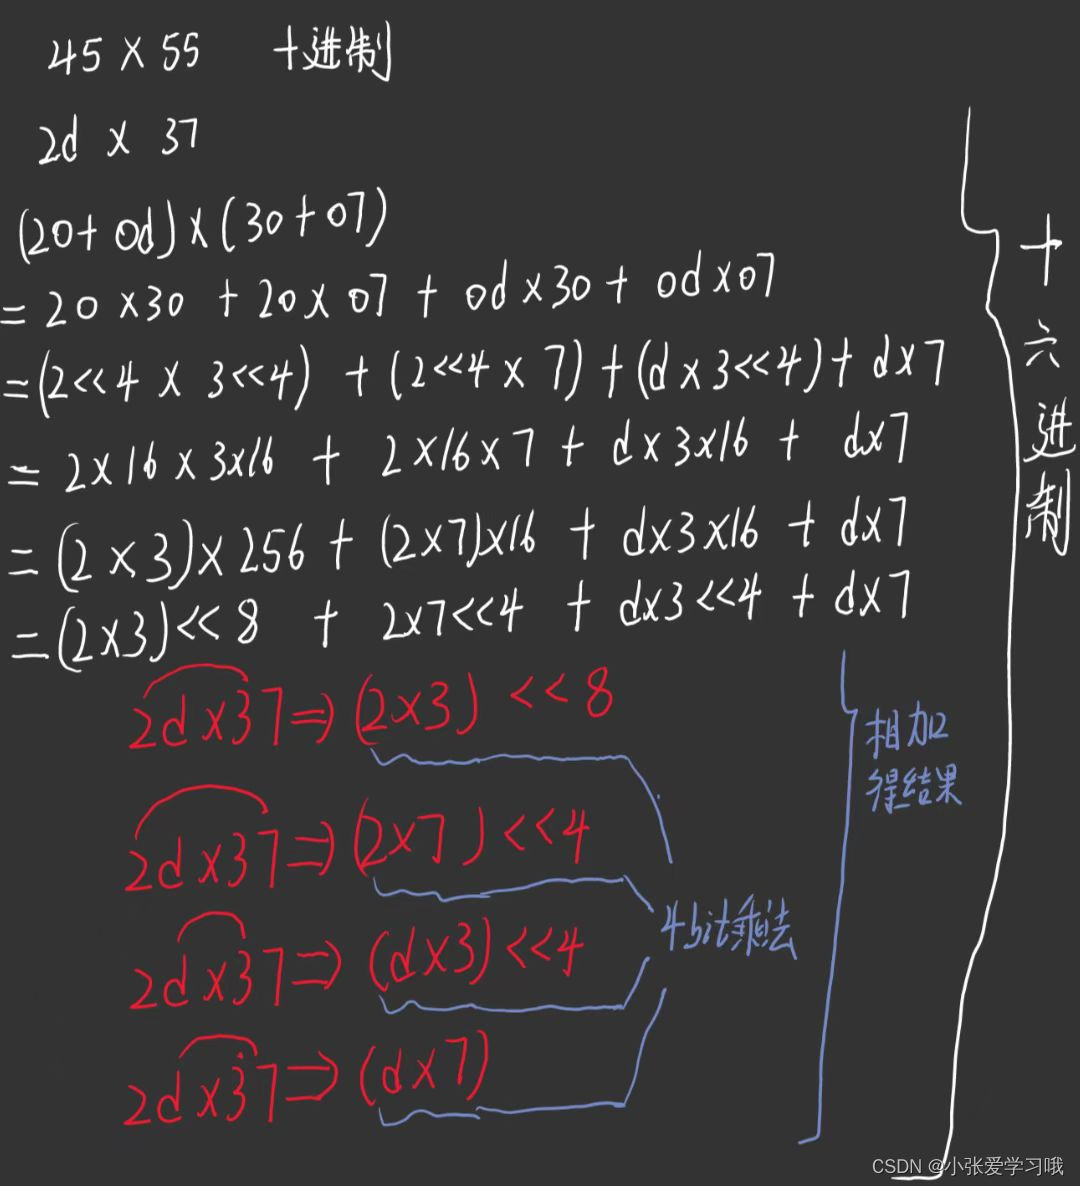 45 × 55 十进制
2d × 37
(20+0d)×(30+07)
=20×30+20×07+0d×30+0d×07
=(2<<4 × 3<<4)+(2<<4×7)+(d×3<<4)+d×7
=2×16×3×16+2×16×7+d×3×16+d×7
=(2×3)×256+(2×7)×16+d×3×16+d×7
=(2×3)<<8+2×7<<4+d×3<<4+d×7
十六进制
2d×37⇒(2×3)<<8
2d×37⇒(2×7)<<4
2d×37⇒(d×3)<<4
2d×37⇒(d×7)
4bit乘法
相加
得结果
CSDN @小张爱学习哦